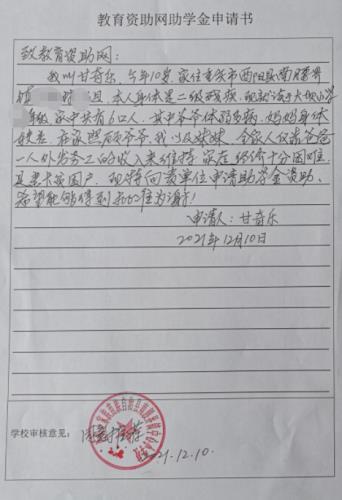 教育资助网助学金申请书
致教育资助网：
我叫甘奇乐，今年10岁，家住重庆市酉阳县南腰界
镇 组，本人身体是二级残疾，现就读于大坝小学
年级，家中共有6口人，其中爷爷体弱多病，妈妈身体
残疾，在家照顾爷爷、我以及妹妹，全家人仅靠爸爸
一人外出务工的收入来维持，家庭经济十分困难，
是卡贫困户，现特向贵单位申请助学金资助，
希望能够得到批准为谢！
申请人：甘奇乐
2021年12月10日
学校审核意见： 同意推荐
2021.12.10.